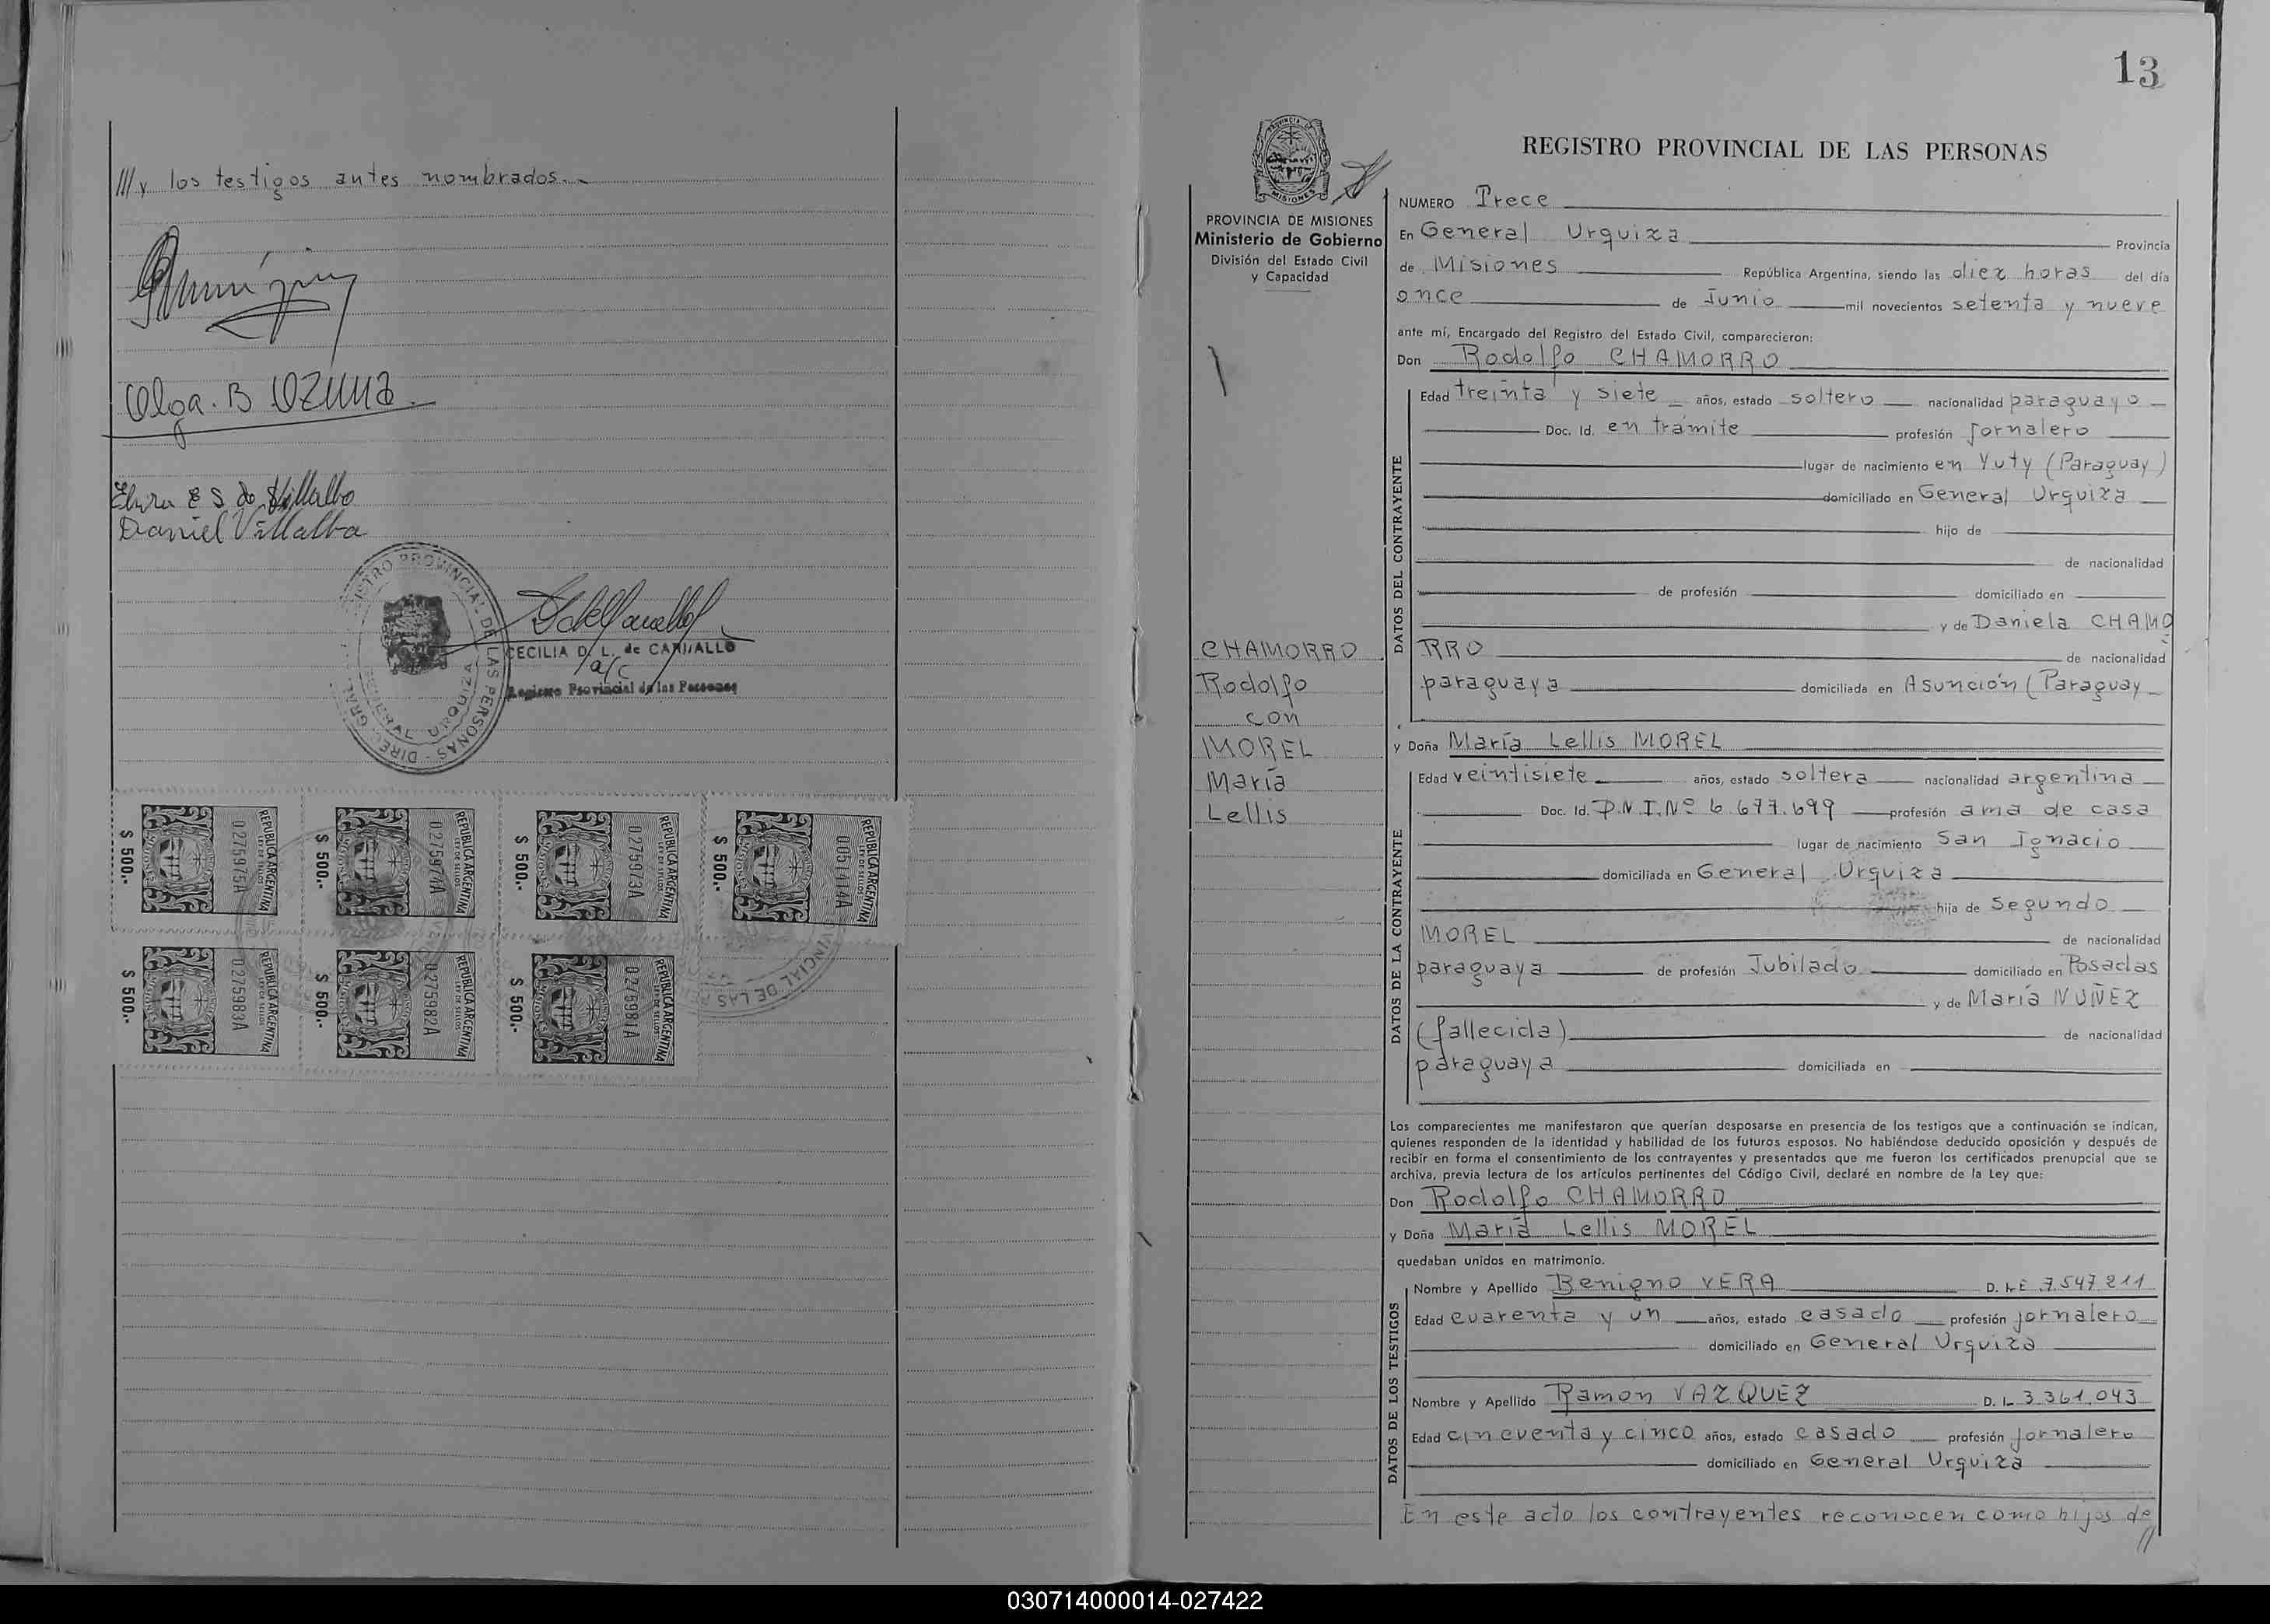 /// y los testigos antes nombrados.-
Olga. B OZUNA
Elvira E S de Villalba
Daniel Villalba
REGISTRO PROVINCIAL DE LAS PERSONAS
GENERAL URQUIZA
CECILIA D. L. de CARVALLO
a/c
Registro Provincial de las Personas
REPUBLICA ARGENTINA
LEY DE SELLOS
0275975A
$ 500.-
REPUBLICA ARGENTINA
LEY DE SELLOS
0275974A
$ 500.-
REPUBLICA ARGENTINA
LEY DE SELLOS
0275973A
$ 500.-
REPUBLICA ARGENTINA
LEY DE SELLOS
$ 500.-
REPUBLICA ARGENTINA
LEY DE SELLOS
0275983A
$ 500.-
REPUBLICA ARGENTINA
LEY DE SELLOS
0275982A
$ 500.-
REPUBLICA ARGENTINA
LEY DE SELLOS
0275981A
$ 500.-
13
PROVINCIA DE MISIONES
REGISTRO PROVINCIAL DE LAS PERSONAS
PROVINCIA DE MISIONES
Ministerio de Gobierno
División del Estado Civil
y Capacidad
CHAMORRO
Rodolfo
con
MOREL
María
Lellis
NUMERO Trece
En General Urquiza Provincia
de Misiones República Argentina, siendo las diez horas del día
once de Junio mil novecientos setenta y nueve
ante mí, Encargado del Registro del Estado Civil, comparecieron:
Don Rodolfo CHAMORRO
DATOS DEL CONTRAYENTE
Edad treinta y siete años, estado soltero nacionalidad paraguayo
Doc. Id. en trámite profesión jornalero
lugar de nacimiento en Yuty (Paraguay)
domiciliado en General Urquiza
hijo de
de nacionalidad
de profesión domiciliado en
y de Daniela CHAMO
RRO de nacionalidad
paraguaya domiciliada en Asunción (Paraguay
y Doña María Lellis MOREL
DATOS DE LA CONTRAYENTE
Edad veintisiete años, estado soltera nacionalidad argentina
Doc. Id. D.N.I. Nº 6.677.699 profesión ama de casa
lugar de nacimiento San Ignacio
domiciliada en General Urquiza
hija de Segundo
MOREL de nacionalidad
paraguaya de profesión Jubilado domiciliado en Posadas
y de María NUÑEZ
(fallecida) de nacionalidad
paraguaya domiciliada en
Los comparecientes me manifestaron que querían desposarse en presencia de los testigos que a continuación se indican,
quienes responden de la identidad y habilidad de los futuros esposos. No habiéndose deducido oposición y después de
recibir en forma el consentimiento de los contrayentes y presentados que me fueron los certificados prenupcial que se
archiva, previa lectura de los artículos pertinentes del Código Civil, declaré en nombre de la Ley que:
Don Rodolfo CHAMORRO
y Doña María Lellis MOREL
quedaban unidos en matrimonio.
DATOS DE LOS TESTIGOS
Nombre y Apellido Benigno VERA D. L.E 7.547.211
Edad cuarenta y un años, estado casado profesión jornalero
domiciliado en General Urquiza
Nombre y Apellido Ramon VAZQUEZ D. I. 3.361.043
Edad cincuenta y cinco años, estado casado profesión jornalero
domiciliado en General Urquiza
En este acto los contrayentes reconocen como hijos de
//
030714000014-027422